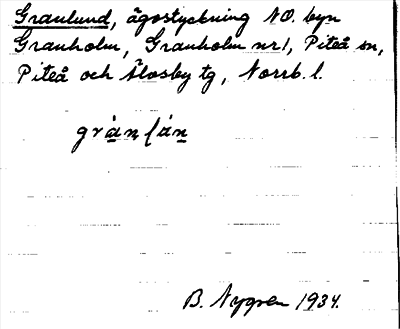 Granlund, ägostyckning NO. byn
Granholm, Granholm nr 1, Piteå sn,
Piteå och Älvsby tg, Norrb. l.
B. Nygren 1934.